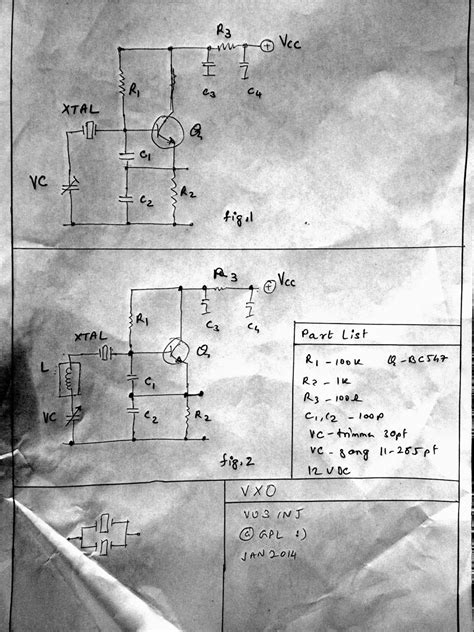 R3
Vcc
C3
C4
R1
XTAL
Q
C1
VC
C2
R2
fig.1
R3
Vcc
C3
C4
R1
XTAL
Q
L
C1
VC
C2
R2
fig.2
Part List
R1 - 100K Q - BC547
R2 - 1K
R3 - 100Ω
C1, C2 - 100p
VC - trimmer 30pf
VC - gang 11-265pf
12 VDC
VXO
VU3INJ
© GPL :)
JAN 2014